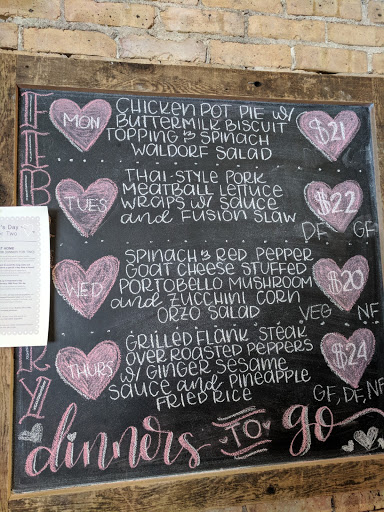 FEBRUARY
MON
CHICKEN POT PIE W/
BUTTERMILK BISCUIT
TOPPING & SPINACH
WALDORF SALAD
$21
TUES
THAI-STYLE PORK
MEATBALL LETTUCE
WRAPS W/ SAUCE
and FUSION SLAW
$22
DF GF
WED
SPINACH & RED PEPPER
GOAT CHEESE STUFFED
PORTOBELLO MUSHROOM
and ZUCCHINI CORN
ORZO SALAD
$20
VEG NF
THURS
GRILLED FLANK STEAK
OVER ROASTED PEPPERS
W/ GINGER SESAME
SAUCE and PINEAPPLE
FRIED RICE
$24
GF, DF, NF
dinners TO go
's Day -
Two